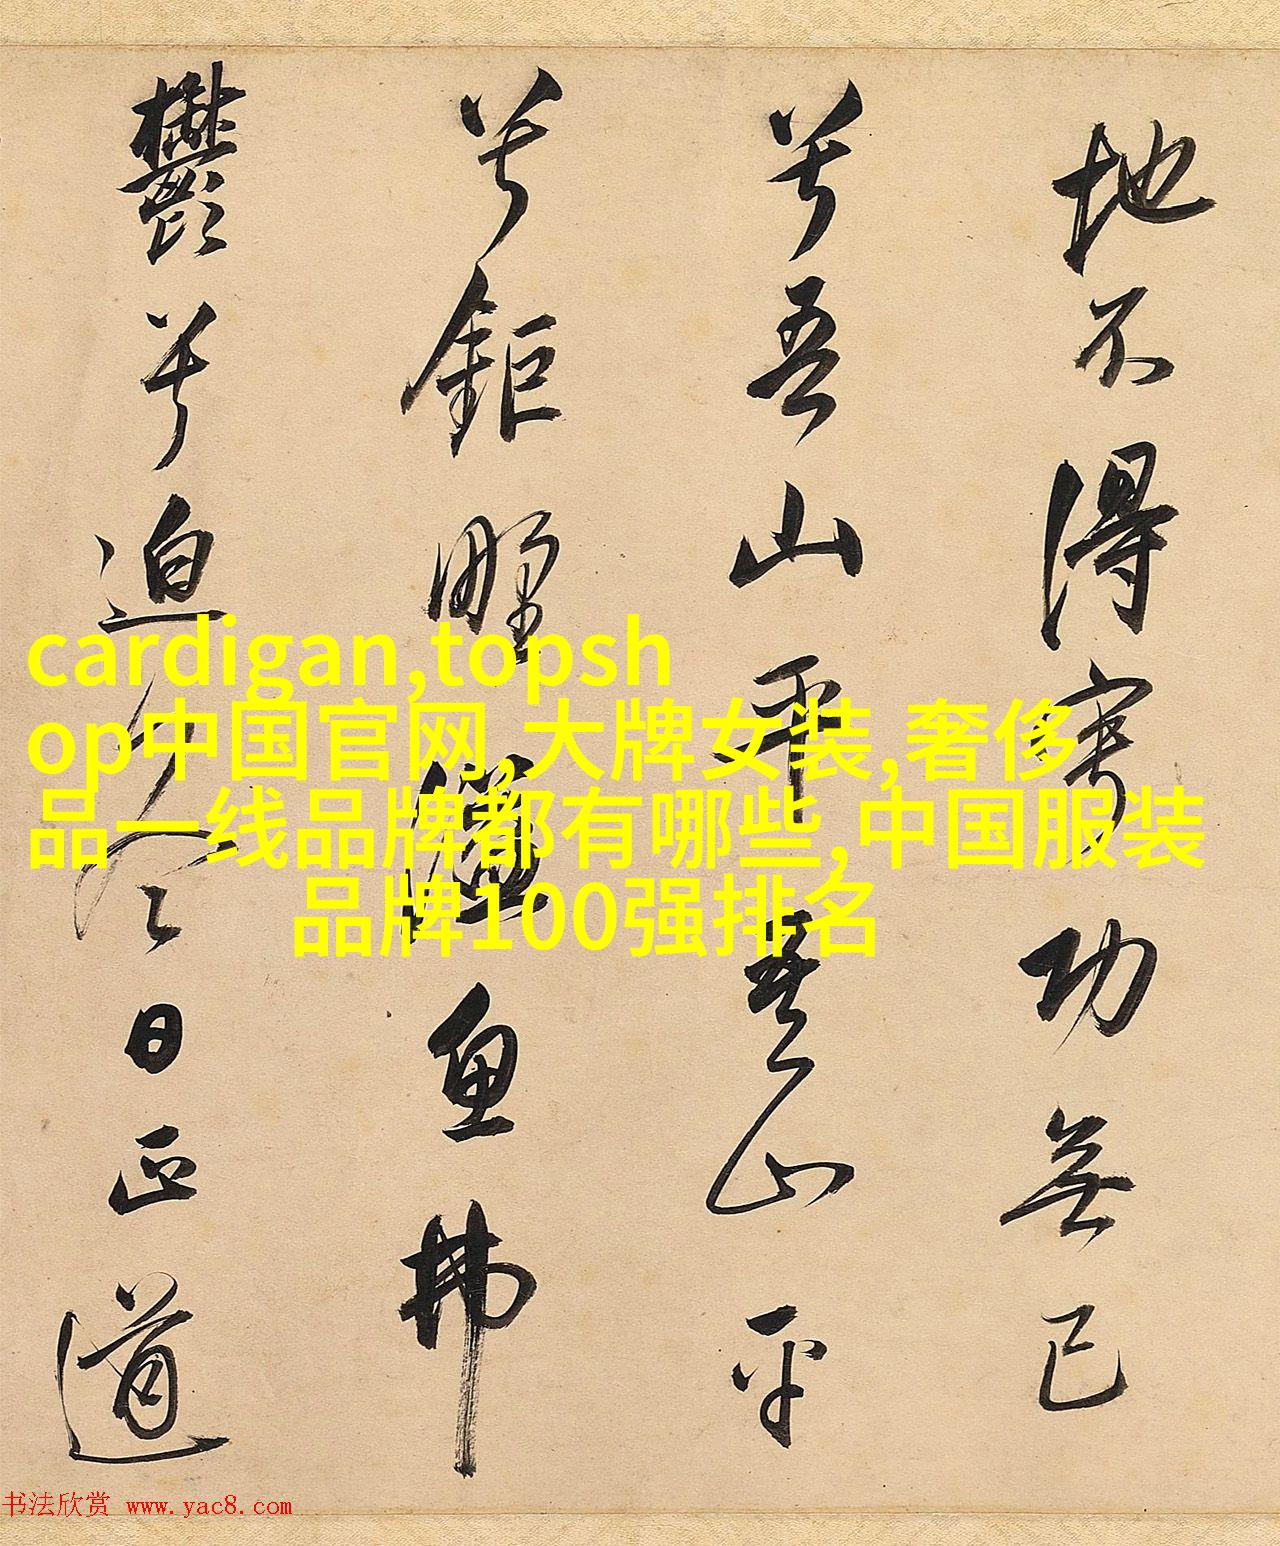 地不得寧功無已
兮吾山平吾山平
兮鉅野溢魚拂
鬱兮迫冬日正道
cardigan,topsh
op中国官网,大牌女装,奢侈
品一线品牌都有哪些,中国服装
品牌100强排名
书法欣赏 www.yac8.com